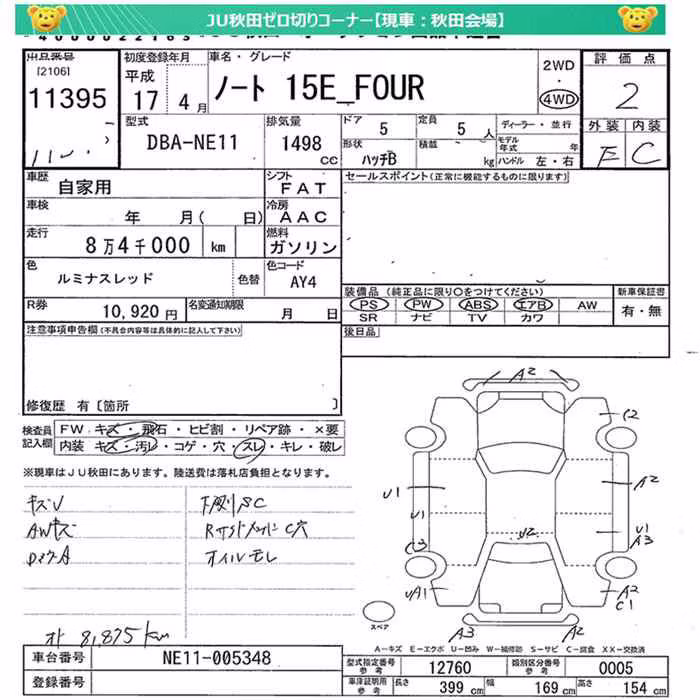 JU秋田ゼロ切りコーナー【現車：秋田会場】
出品番号 初度登録年月 車名・グレード 評価点
[2106] 平成 2WD
11395 17 4月 ノート 15E_FOUR ・ 2
4WD
型式 排気量 ドア 定員 ディーラー・並行 外装 内装
DBA-NE11 1498 cc 5 5人 モデル年式 年 C
形状 積載
ハッチB kg ハンドル 左・右
車歴 シフト セールスポイント(正常に機能するものに限ります)
自家用 FAT
車検 冷房
年 月( 日) AAC
走行 燃料
8万4千000 km ガソリン
色 色コード
ルミナスレッド 色替 AY4
装備品(純正品に限り○をつけてください) 新車保証書
R券 名変通知期限 PS PW ABS エアB AW 有・無
10,920円 月 日 SR ナビ TV カワ
注意事項申告欄(不具合内容等は具体的に記入して下さい) 後日品
修復歴 有〔箇所 〕
検査員記入欄 FW キズ・飛石・ヒビ割・リペア跡・×要
内装 キズ・汚レ・コゲ・穴・スレ・キレ・破レ
※現車はJU秋田にあります。陸送費は落札店負担となります。
キズU 下廻りSC
AWキズ C穴
オイルモレ
8,875km
A2
C2
U1 A2
U1 U2 U1
C3 A3
UA1 A2
C1
スペア A3 A2
A-キズ E-エクボ U-凹み W-補修跡 S-サビ C-腐食 XX-交換済
車台番号 NE11-005348 型式指定番号 12760 類別区分番号 0005
登録番号 車庫証明用参考 長さ 399cm 幅 169cm 高さ 154cm